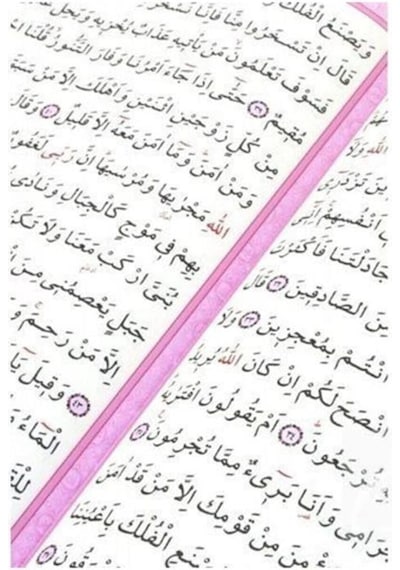 وَيَصْنَعُ الْفُلْكَ
قَالَ اِنْ تَسْخَرُوا مِنَّا فَاِنَّا نَسْخَرُ
فَسَوْفَ تَعْلَمُونَ مَنْ يَأْتٖيهِ عَذَابٌ يُخْزٖيهِ وَيَحِلُّ
مُقٖيمٌ ﴿٣٩﴾ حَتّٰٓى اِذَا جَٓاءَ اَمْرُنَا وَفَارَ التَّنُّورُ قُلْنَا
مِنْ كُلٍّ زَوْجَيْنِ اثْنَيْنِ وَاَهْلَكَ اِلَّا مَنْ سَبَقَ
وَمَنْ اٰمَنَ وَمَٓا اٰمَنَ مَعَهُٓ اِلَّا قَلٖيلٌ ﴿٤٠﴾ وَقَالَ
اللّٰهِ مَجْرٰۭيهَا وَمُرْسٰيهَا اِنَّ رَبّٖى لَغَفُورٌ
بِهِمْ فٖى مَوْجٍ كَالْجِبَالِ وَنَادٰى
بُنَىَّ ارْكَبْ مَعَنَا وَلَا تَكُنْ
جَبَلٍ يَعْصِمُنٖى مِنَ
اِلَّا مَنْ رَحِمَ وَ
﴿٤٣﴾ وَقٖيلَ يَٓا
الْمَٓاءُ
لِلْقَ
اللّٰهُ وَلَٓا
ينَ تَزْدَرٖٓى
اَنْفُسِهِمْ اِنّٖٓى
جَادَلْتَنَا فَاَكْثَرْتَ
مِنَ الصَّادِقٖينَ ﴿٣٢﴾ قَالَ
اَنْتُمْ بِمُعْجِزٖينَ ﴿٣٣﴾ وَلَا
اَنْصَحَ لَكُمْ اِنْ كَانَ اللّٰهُ يُرٖيدُ
تُرْجَعُونَ ﴿٣٤﴾ اَمْ يَقُولُونَ افْتَرٰيهُ
اِجْرَامٖى وَاَنَا۬ بَرٖٓىءٌ مِمَّا تُجْرِمُونَ ﴿٣٥﴾
مِنْ قَوْمِكَ اِلَّا مَنْ قَدْ اٰمَنَ
الْفُلْكَ بِاَعْيُنِنَا